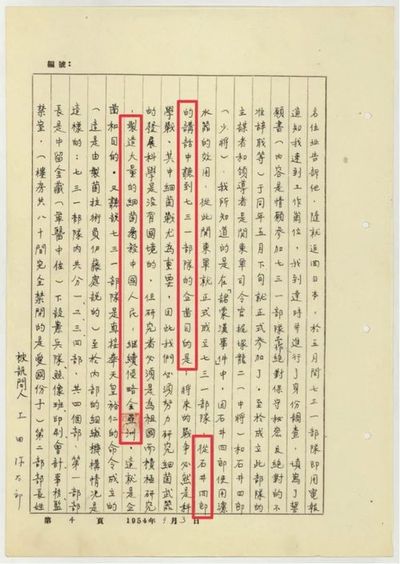 編號：
名住址告訴他，隨就返回日本，於五月間七三一部隊即用電報
通知我速到工作崗位，我到達時并進行了身份調查，填寫了誓
願書（內容是情願參加七三一部隊工作絕對保守秘密及絕對的不
准辭職等）于同年五月下旬就正式參加了。至於成立此部隊的
主謀者和領導者是関東軍司令官梶塚龍二（中將）和石井四郎
（少將），我所知道的是在「諾蒙漢事件」中，因石井四郎使用濾
水器的效用，從此関東軍就正式成立七三一部隊，從石井四郎
的講話中聽到七三一部隊的企畫目的是：將來的戰爭必然是科
學戰，其中細菌戰尤為重要，因此我們必須努力研究細菌武器
的發展科學是沒有國境的，但研究者必須是為祖國而積極研究
，製造大量的細菌屠殺中國人民，繼續侵略全亞洲，這就是企
畫和目的，又聽說七三一部隊是直接奉天皇裕仁的命令成立的
（這是由製菌技術員伊藤處說的）至於內部的組織機構情況是
這樣的：七三一部隊內共分一二三四部，共四個部，第一部部
長是中留金藏（軍醫中佐）下設憲兵隊照像班印刷會計事務監
禁室，（樓房共八十間完全禁閉的是愛國份子）第二部部長姓
被訊問人 上田弥太郎
第 4 頁 1954年 月 3日